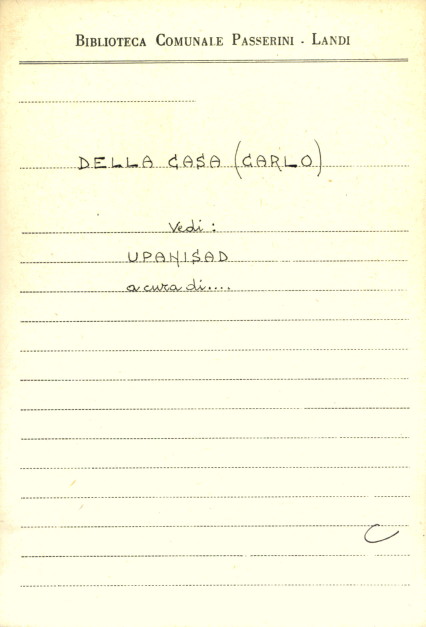 BIBLIOTECA COMUNALE PASSERINI - LANDI
DELLA CASA (CARLO)
Vedi :
UPANISAD
a cura di....
C